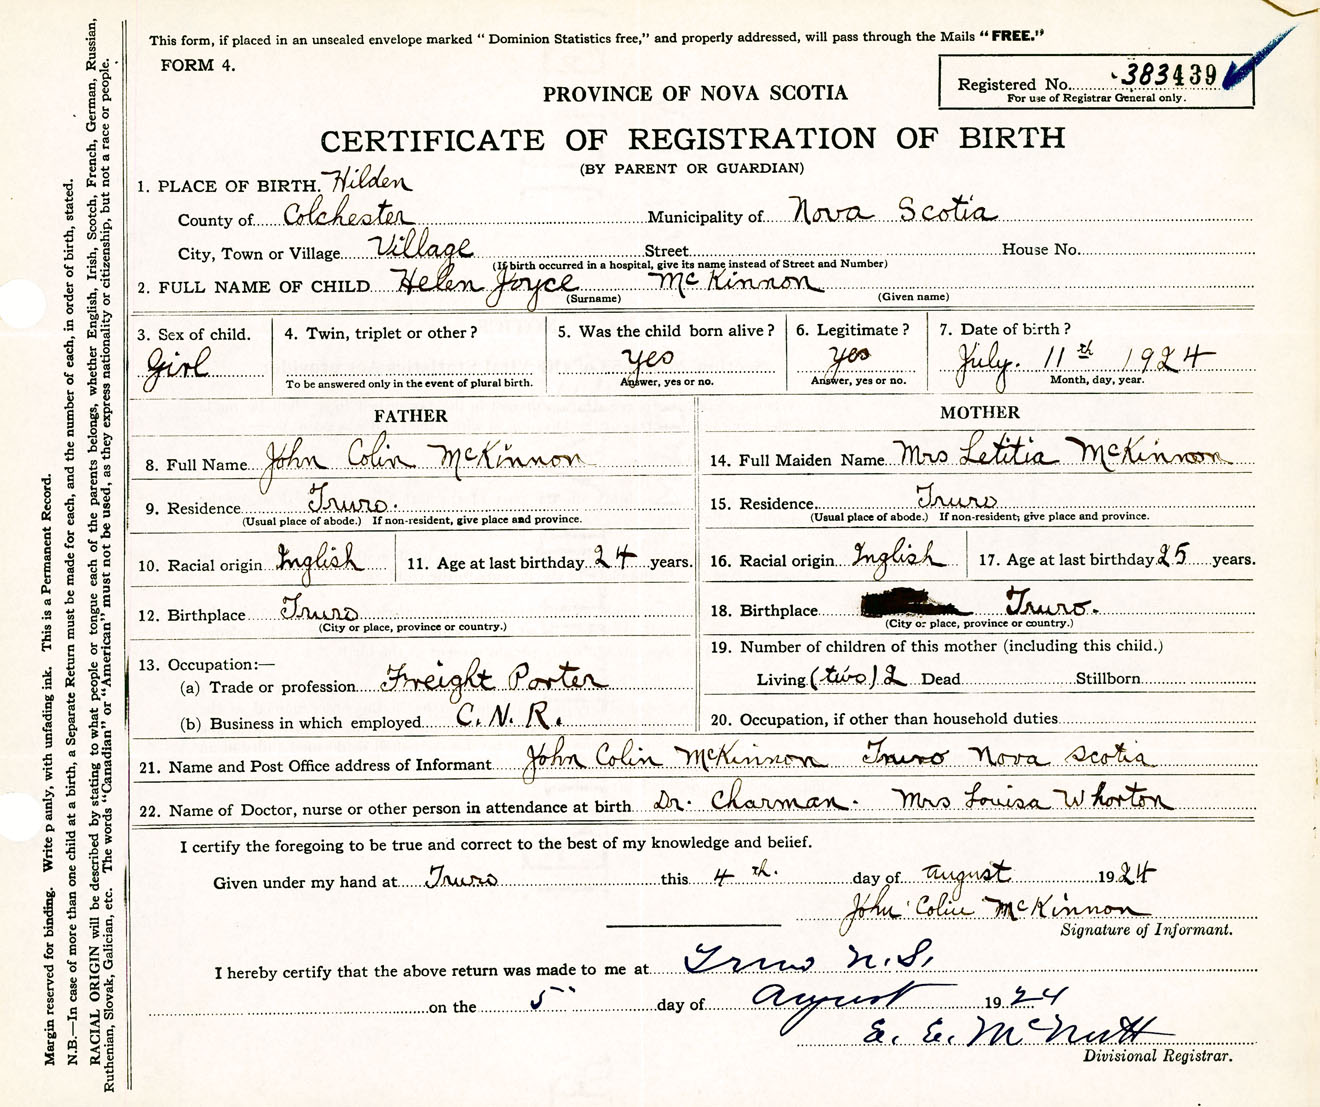 This form, if placed in an unsealed envelope marked " Dominion Statistics free," and properly addressed, will pass through the Mails "FREE."
FORM 4.
Registered No. 383439
For use of Registrar General only.
PROVINCE OF NOVA SCOTIA
CERTIFICATE OF REGISTRATION OF BIRTH
(BY PARENT OR GUARDIAN)
1. PLACE OF BIRTH. Hilden
County of Colchester Municipality of Nova Scotia
City, Town or Village Village Street House No.
(If birth occurred in a hospital, give its name instead of Street and Number)
2. FULL NAME OF CHILD Helen Joyce McKinnon
(Surname) (Given name)
3. Sex of child. 4. Twin, triplet or other? 5. Was the child born alive? 6. Legitimate? 7. Date of birth?
Girl yes yes July. 11th 1924
To be answered only in the event of plural birth. Answer, yes or no. Answer, yes or no. Month, day, year.
FATHER MOTHER
8. Full Name John Colin McKinnon 14. Full Maiden Name Mrs Letitia McKinnon
9. Residence Truro. 15. Residence Truro
(Usual place of abode.) If non-resident, give place and province. (Usual place of abode.) If non-resident; give place and province.
10. Racial origin Inglish 11. Age at last birthday 24 years. 16. Racial origin Inglish 17. Age at last birthday 25 years.
12. Birthplace Truro 18. Birthplace Truro.
(City or place, province or country.) (City or place, province or country.)
13. Occupation:— 19. Number of children of this mother (including this child.)
(a) Trade or profession Freight Porter Living (two) 2 Dead Stillborn
(b) Business in which employed C. N. R. 20. Occupation, if other than household duties
21. Name and Post Office address of Informant John Colin McKinnon Truro Nova Scotia
22. Name of Doctor, nurse or other person in attendance at birth Dr. Charman. Mrs Louisa Whorton
I certify the foregoing to be true and correct to the best of my knowledge and belief.
Given under my hand at Truro this 4th. day of august 1924
John Colin McKinnon
Signature of Informant.
I hereby certify that the above return was made to me at Truro N.S.
on the 5" day of August 1924
E. E. McNutt
Divisional Registrar.
Margin reserved for binding. Write p ainly, with unfading ink. This is a Permanent Record.
N.B.—In case of more than one child at a birth, a Separate Return must be made for each, and the number of each, in order of birth, stated.
RACIAL ORIGIN will be described by stating to what people or tongue each of the parents belongs, whether English, Irish, Scotch, French, German, Russian,
Ruthenian, Slovak, Galician, etc. The words "Canadian" or "American" must not be used, as they express nationality or citizenship, but not a race or people.